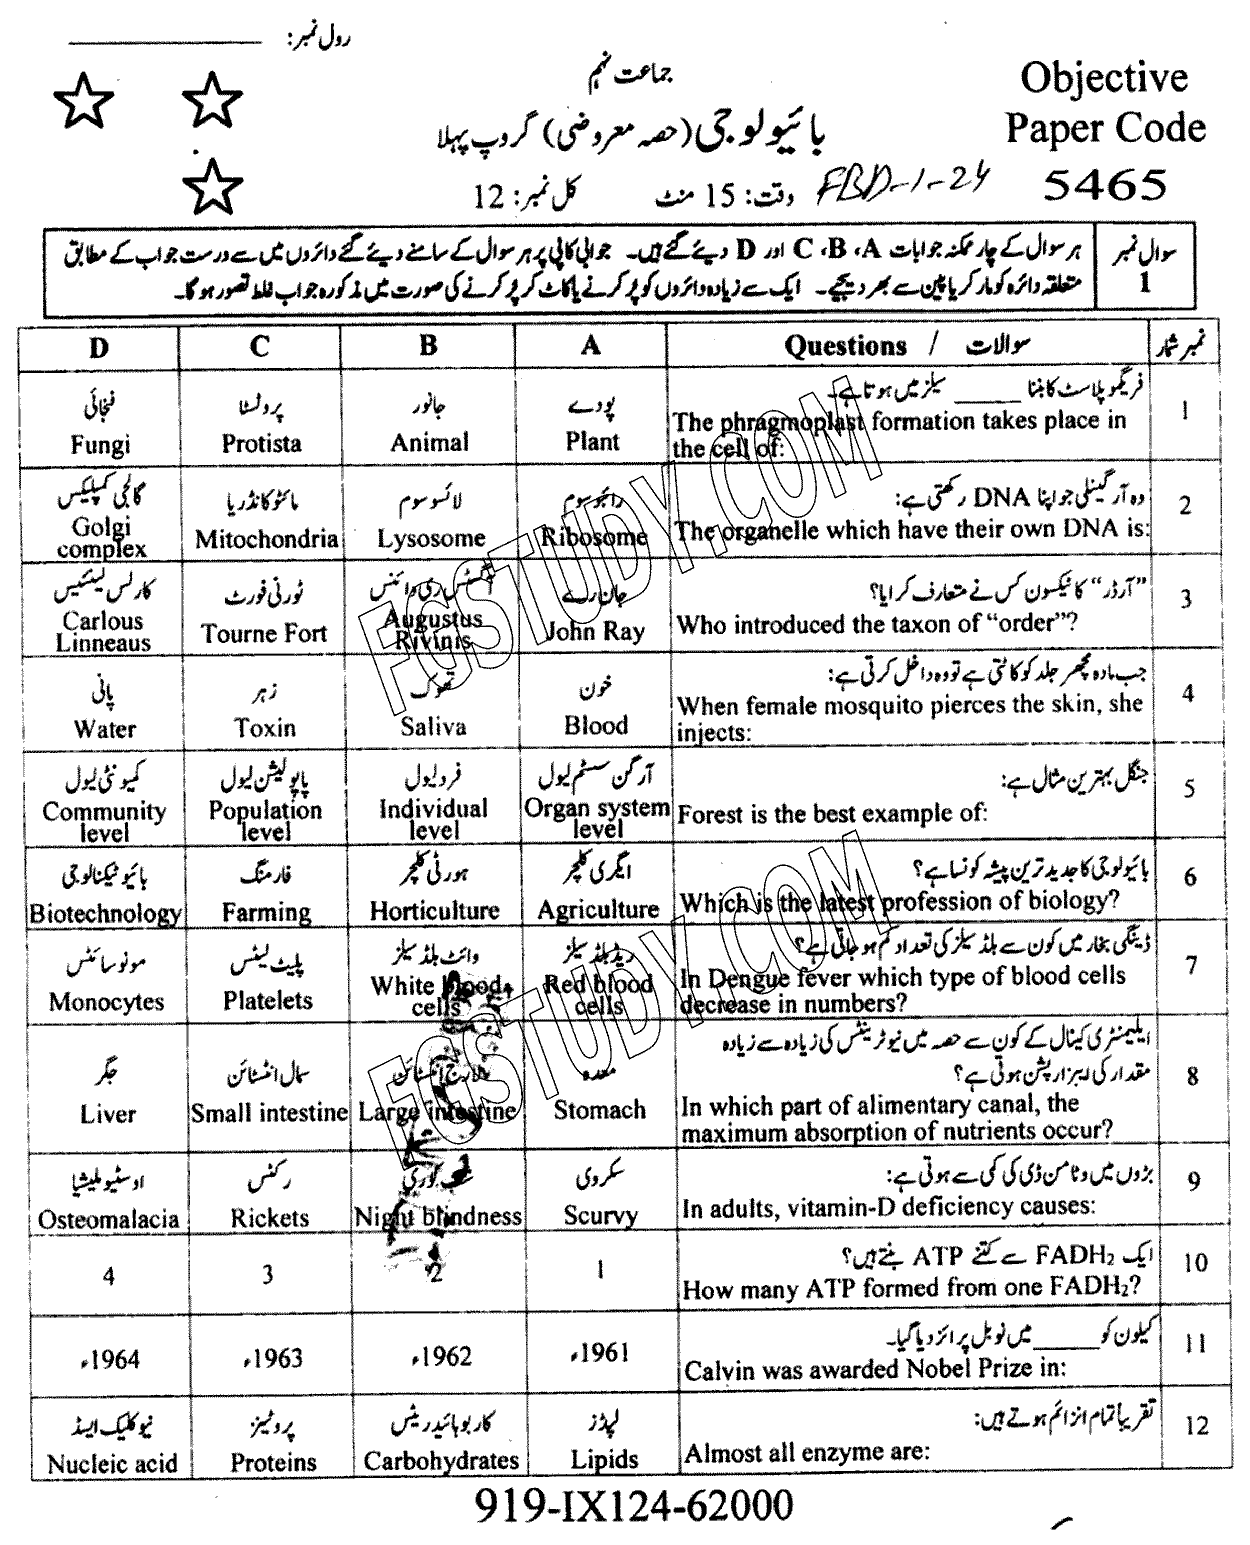 رول نمبر: ____________
جماعت نہم
Objective
Paper Code
5465
بائیولوجی (حصہ معروضی) گروپ پہلا
وقت: 15 منٹ کل نمبر: 12
FBD-1-24
سوال نمبر 1
ہر سوال کے چار ممکنہ جوابات A، B، C اور D دیئے گئے ہیں۔ جوابی کاپی پر ہر سوال کے سامنے دیئے گئے دائروں میں سے درست جواب کے مطابق
متعلقہ دائرہ کو مارکر یا پین سے بھر دیجیے۔ ایک سے زیادہ دائروں کو پُر کرنے یا کاٹ کر پُر کرنے کی صورت میں مذکورہ جواب غلط تصور ہوگا۔
D C B A Questions / سوالات نمبر شمار
فریگموپلاسٹ کا بننا ______ سیلز میں ہوتا ہے۔ 1
پودے جانور پروٹسٹا فنجائی
The phragmoplast formation takes place in
the cell of:
Fungi Protista Animal Plant
وہ آرگنیلی جو اپنا DNA رکھتی ہے: 2
رائبوسوم لائسوسوم مائٹوکانڈریا گالجی کمپلیکس
The organelle which have their own DNA is:
Golgi complex Mitochondria Lysosome Ribosome
"آرڈر" کا ٹیکسون کس نے متعارف کرایا؟ 3
جان رے آگسٹس ری وائنس ٹورنی فورٹ کارلس لینئیس
Who introduced the taxon of “order”?
Carlous Linneaus Tourne Fort Augustus Rivinis John Ray
جب مادہ مچھر جلد کو کاٹتی ہے تو وہ داخل کرتی ہے: 4
خون تھوک زہر پانی
When female mosquito pierces the skin, she
injects:
Water Toxin Saliva Blood
جنگل بہترین مثال ہے: 5
آرگن سسٹم لیول فرد لیول پاپولیشن لیول کمیونٹی لیول
Forest is the best example of:
Community level Population level Individual level Organ system level
بائیولوجی کا جدید ترین پیشہ کونسا ہے؟ 6
ایگری کلچر ہورٹی کلچر فارمنگ بائیوٹیکنالوجی
Which is the latest profession of biology?
Biotechnology Farming Horticulture Agriculture
ڈینگی بخار میں کون سے بلڈ سیلز کی تعداد کم ہو جاتی ہے؟ 7
ریڈ بلڈ سیلز وائٹ بلڈ سیلز پلیٹ لیٹس مونوسائٹس
In Dengue fever which type of blood cells
decrease in numbers?
Monocytes Platelets White blood cells Red blood cells
ایلیمنٹری کینال کے کون سے حصہ میں نیوٹرینٹس کی زیادہ سے زیادہ
مقدار کی ابزارپشن ہوتی ہے؟ 8
معدہ لارج انٹسٹائن سمال انٹسٹائن جگر
In which part of alimentary canal, the
maximum absorption of nutrients occur?
Liver Small intestine Large intestine Stomach
بڑوں میں وٹامن ڈی کی کمی سے ہوتی ہے: 9
سکروی شب کوری رکٹس اوسٹیوملیشیا
In adults, vitamin-D deficiency causes:
Osteomalacia Rickets Night blindness Scurvy
ایک FADH₂ سے کتنے ATP بنتے ہیں؟ 10
How many ATP formed from one FADH₂?
4 3 2 1
کیلون کو ______ میں نوبل پرائز دیا گیا۔ 11
Calvin was awarded Nobel Prize in:
1964ء 1963ء 1962ء 1961ء
تقریباً تمام انزائم ہوتے ہیں: 12
لپڈز کاربوہائیڈریٹس پروٹینز نیوکلیک ایسڈ
Almost all enzyme are:
Nucleic acid Proteins Carbohydrates Lipids
919-IX124-62000
FGSTUDY.COM
FGSTUDY.COM